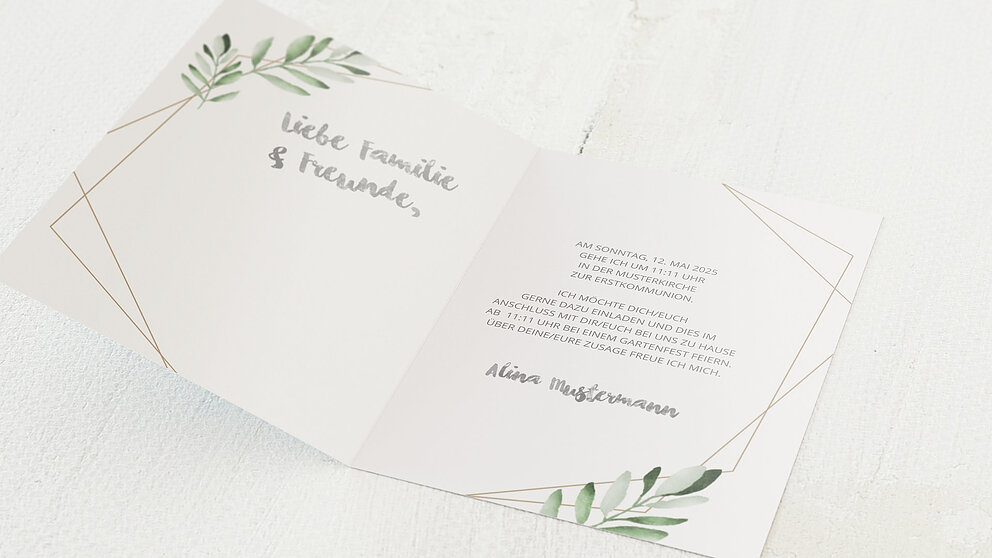 Liebe Familie
& Freunde,
AM SONNTAG, 12. MAI 2025
GEHE ICH UM 11:11 UHR
IN DER MUSTERKIRCHE
ZUR ERSTKOMMUNION.
ICH MÖCHTE DICH/EUCH
GERNE DAZU EINLADEN UND DIES IM
ANSCHLUSS MIT DIR/EUCH BEI UNS ZU HAUSE
AB 11:11 UHR BEI EINEM GARTENFEST FEIERN.
ÜBER DEINE/EURE ZUSAGE FREUE ICH MICH.
Alina Mustermann